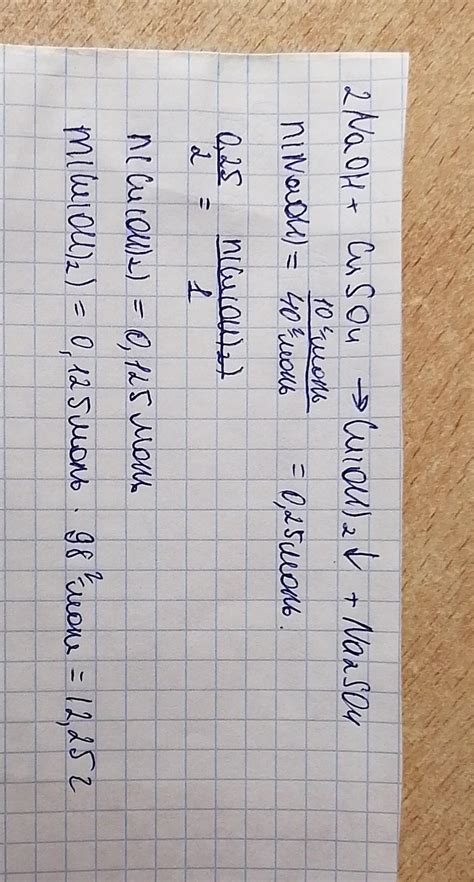 2NaOH + CuSO4 → Cu(OH)2↓ + Na2SO4
n(NaOH) = 10 г/моль / 40 г/моль = 0,25 моль.
0,25 / 2 = n(Cu(OH)2) / 1
n(Cu(OH)2) = 0,125 моль
m(Cu(OH)2) = 0,125 моль · 98 г/моль = 12,25 г